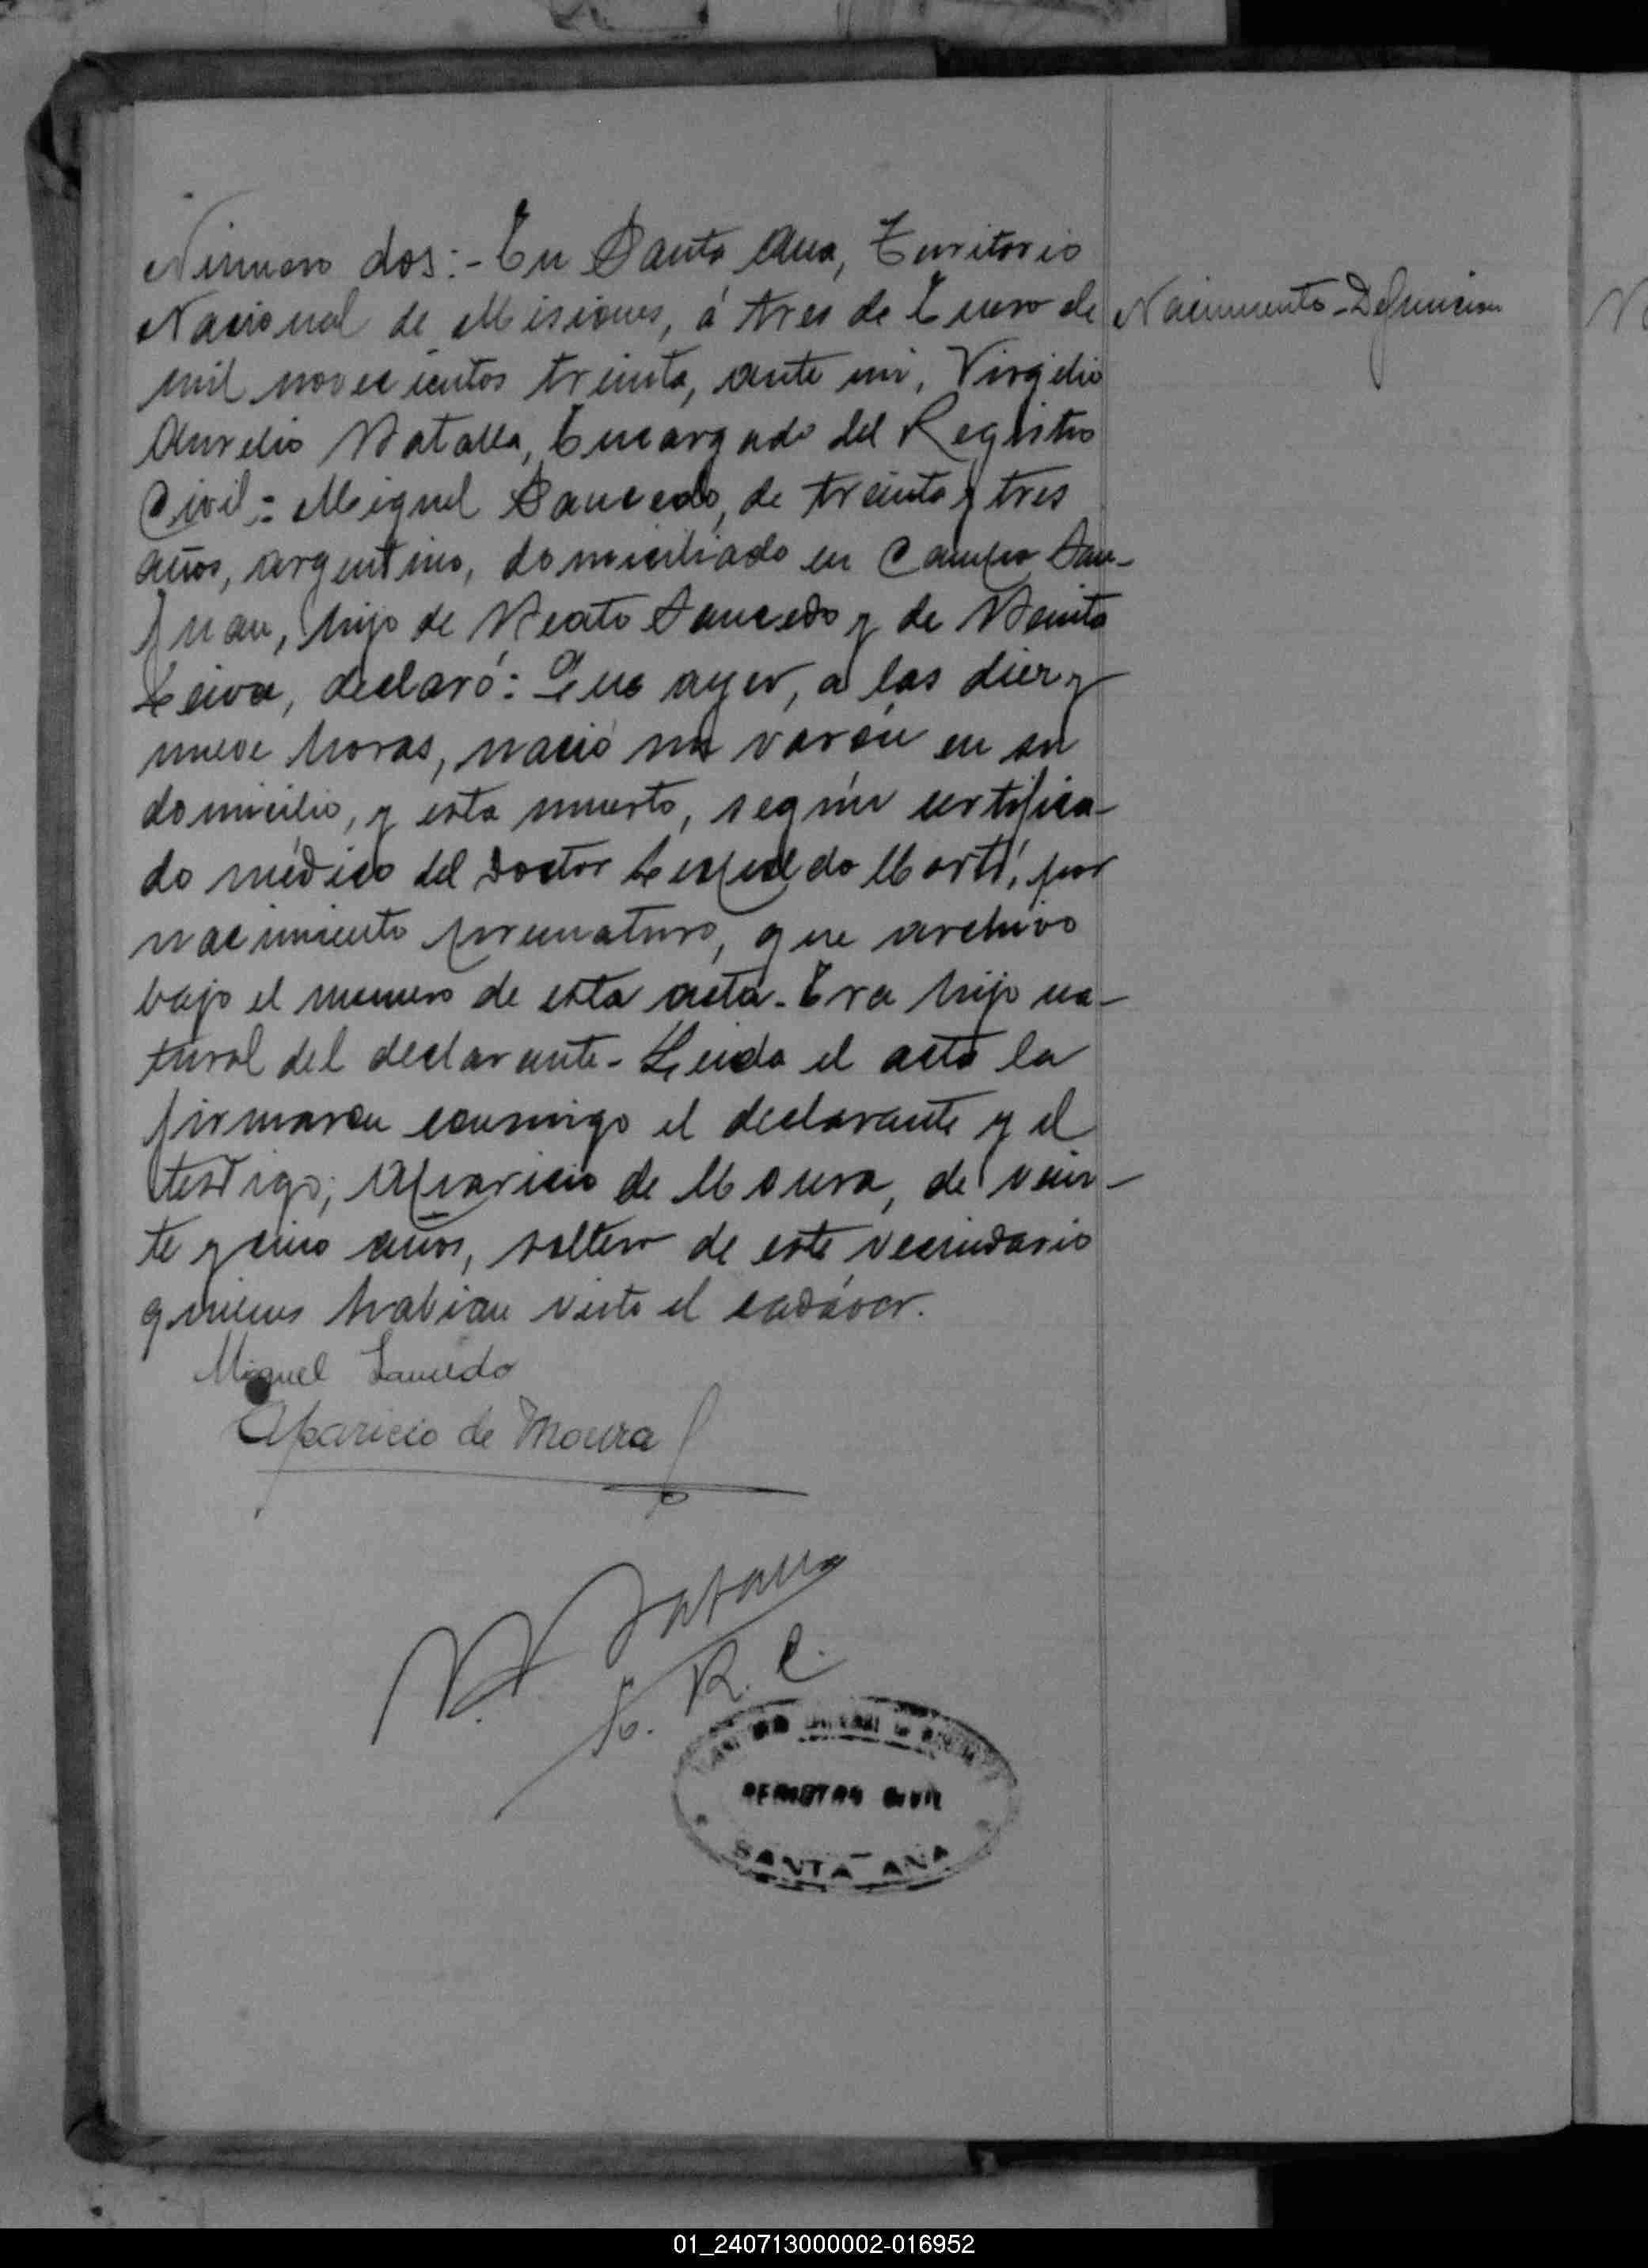 Número dos:- En Santa Ana, Territorio
Nacional de Misiones, á tres de Enero de
mil novecientos treinta, ante mi, Virgilio
Aurelio Batalla, Encargado del Registro
Civil: Miguel Saucedo, de treinta y tres
años, argentino, domiciliado en Campo San-
Juan, hijo de Beato Saucedo y de Benita
Leiva, declaró: Que ayer, a las diez y
nueve horas, nació un varón en su
domicilio, y esta muerto, según certifica-
do médico del Doctor Leopoldo Martí, por
nacimiento prematuro, que archivo
bajo el numero de esta acta. Era hijo na-
tural del declarante- Leida el acta la
firmaron conmigo el declarante y el
testigo; Aparicio de Moura, de vein-
te y cinco años, soltero de este vecindario
quienes habian visto el cadáver.
Miguel Saucedo
Aparicio de Moura
V. A. Batalla
E. R. C.
REGISTRO CIVIL
SANTA ANA
Nacimiento-Defuncion
N
01_240713000002-016952